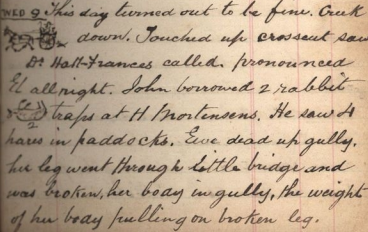 WED 9. This day turned out to be fine. Creek
down. Touched up crosscut saw
Dr Hall-Frances called. pronounced
El allright. John borrowed 2 rabbit
2 traps at H Mortensens. He saw 4
hares in paddocks. Ewe dead up gully.
her leg went through little bridge and
was broken, her body in gully, the weight
of her body pulling on broken leg.